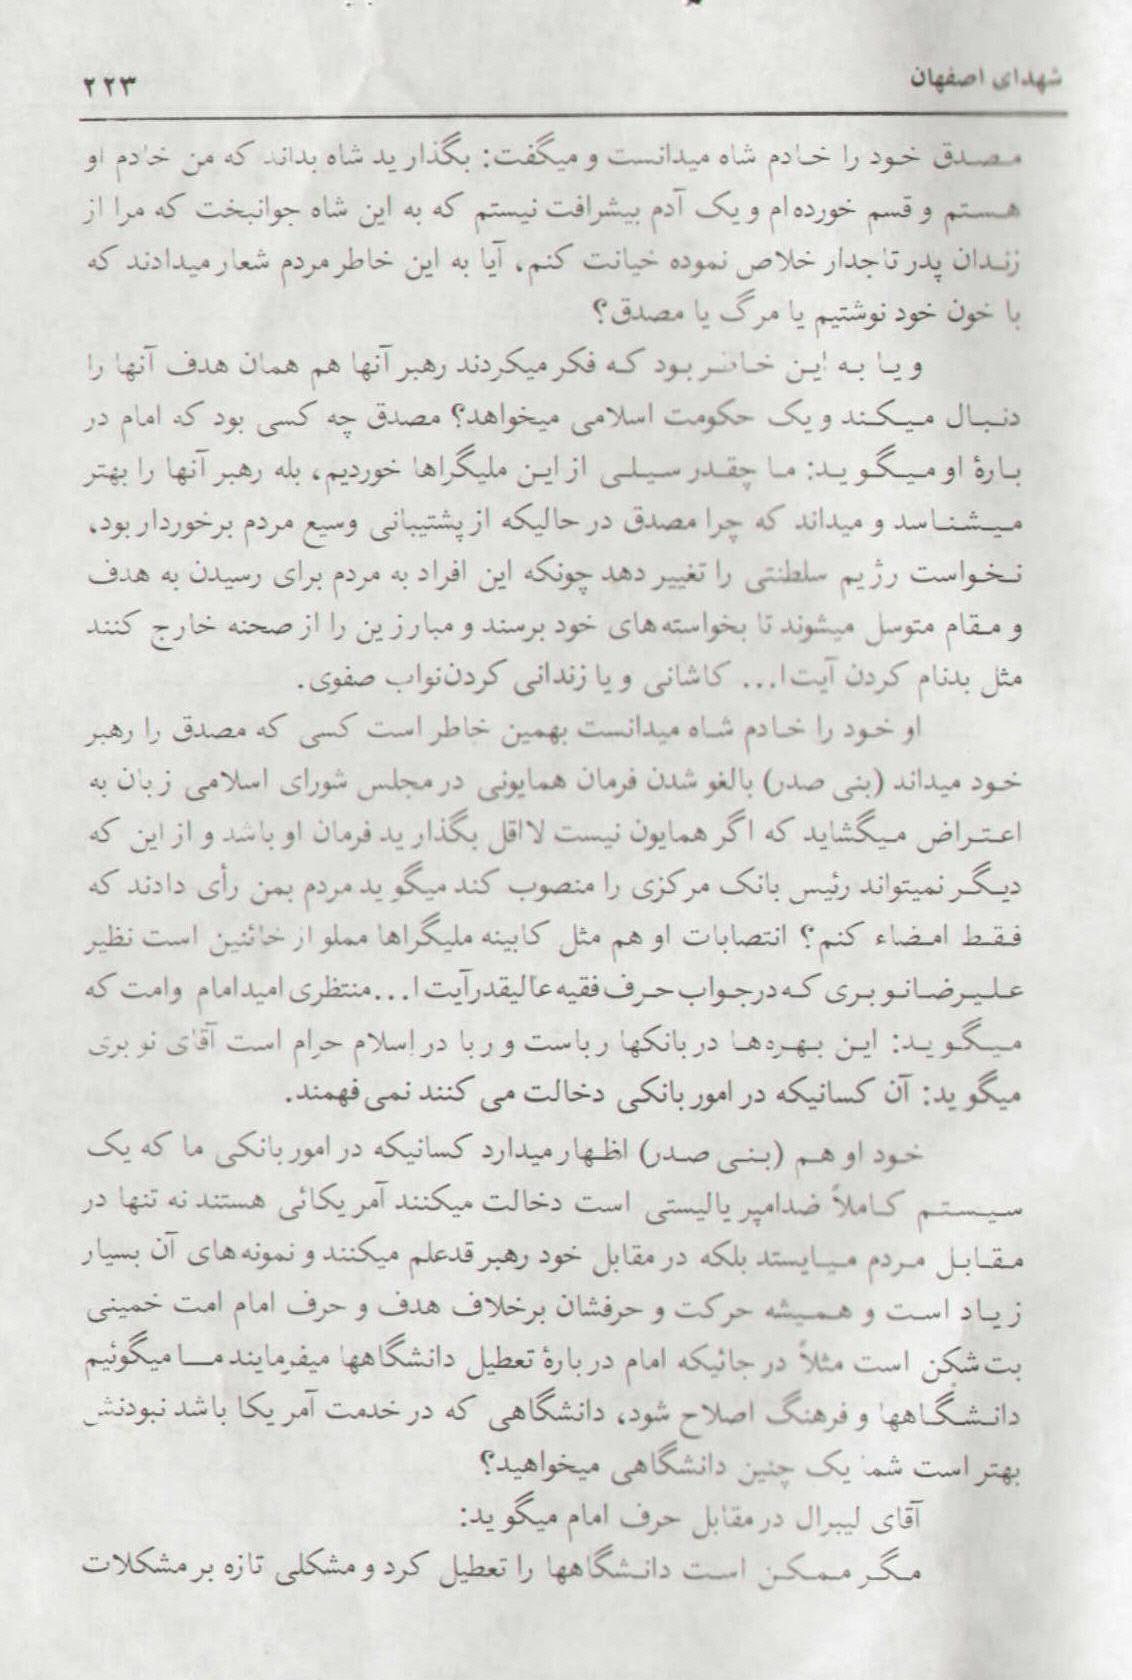 شهدای اصفهان ۲۲۳
مصدق خود را خادم شاه میدانست و میگفت: بگذارید شاه بداند که من خادم او
هستم و قسم خورده‌ام و یک آدم بیشرافت نیستم که به این شاه جوانبخت که مرا از
زندان پدر تاجدار خلاص نموده خیانت کنم، آیا به این خاطر مردم شعار میدادند که
با خون خود نوشتیم یا مرگ یا مصدق؟
و یا به این خاطر بود که فکر میکردند رهبر آنها هم همان هدف آنها را
دنبال میکند و یک حکومت اسلامی میخواهد؟ مصدق چه کسی بود که امام در
بارهٔ او میگوید: ما چقدر سیلی از این ملیگراها خوردیم، بله رهبر آنها را بهتر
میشناسد و میداند که چرا مصدق در حالیکه از پشتیبانی وسیع مردم برخوردار بود،
نخواست رژیم سلطنتی را تغییر دهد چونکه این افراد به مردم برای رسیدن به هدف
و مقام متوسل میشوند تا بخواسته‌های خود برسند و مبارزین را از صحنه خارج کنند
مثل بدنام کردن آیت‌ا... کاشانی و یا زندانی کردن نواب صفوی.
او خود را خادم شاه میدانست بهمین خاطر است کسی که مصدق را رهبر
خود میداند (بنی صدر) بالغو شدن فرمان همایونی در مجلس شورای اسلامی زبان به
اعتراض میگشاید که اگر همایون نیست لااقل بگذارید فرمان او باشد و از این که
دیگر نمیتواند رئیس بانک مرکزی را منصوب کند میگوید مردم بمن رأی دادند که
فقط امضاء کنم؟ انتصابات او هم مثل کابینه ملیگراها مملو از خائنین است نظیر
علیرضا نوبری که در جواب حرف فقیه عالیقدر آیت ا... منتظری امید امام وامت که
میگوید: این بهره‌ها در بانکها رباست و ربا در اسلام حرام است آقای نوبری
میگوید: آن کسانیکه در امور بانکی دخالت می کنند نمی فهمند.
خود او هم (بنی صدر) اظهار میدارد کسانیکه در امور بانکی ما که یک
سیستم کاملاً ضدامپریالیستی است دخالت میکنند آمریکائی هستند نه تنها در
مقابل مردم میایستد بلکه در مقابل خود رهبر قدعلم میکنند و نمونه‌های آن بسیار
زیاد است و همیشه حرکت و حرفشان برخلاف هدف و حرف امام امت خمینی
بت شکن است مثلاً در جائیکه امام در بارهٔ تعطیل دانشگاهها میفرمایند ما میگوئیم
دانشگاهها و فرهنگ اصلاح شود، دانشگاهی که در خدمت آمریکا باشد نبودنش
بهتر است شما یک چنین دانشگاهی میخواهید؟
آقای لیبرال در مقابل حرف امام میگوید:
مگر ممکن است دانشگاهها را تعطیل کرد و مشکلی تازه بر مشکلات